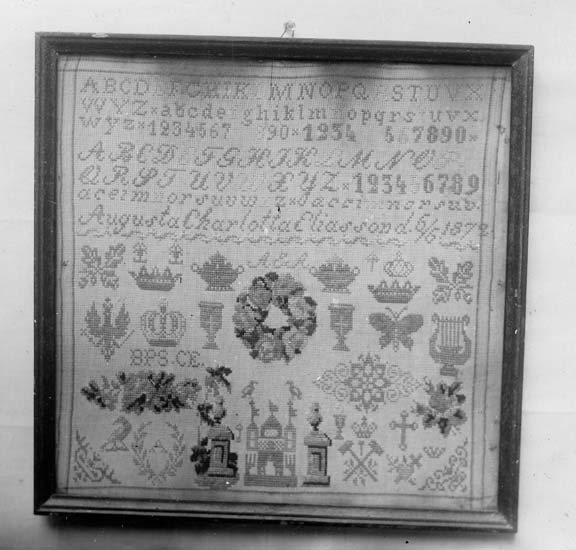 ABCDEFGHIKLMNOPQRSTUVX
WYZ×abcdefghiklmnopqrstuvx
wyz×1234567890×1234567890×
ABCDEFGHIKLMNOP
QRSTUVWXYZ×123456789
Augusta Charlotta Eliasson d. 6/6 1872
AEA
BPS.CE